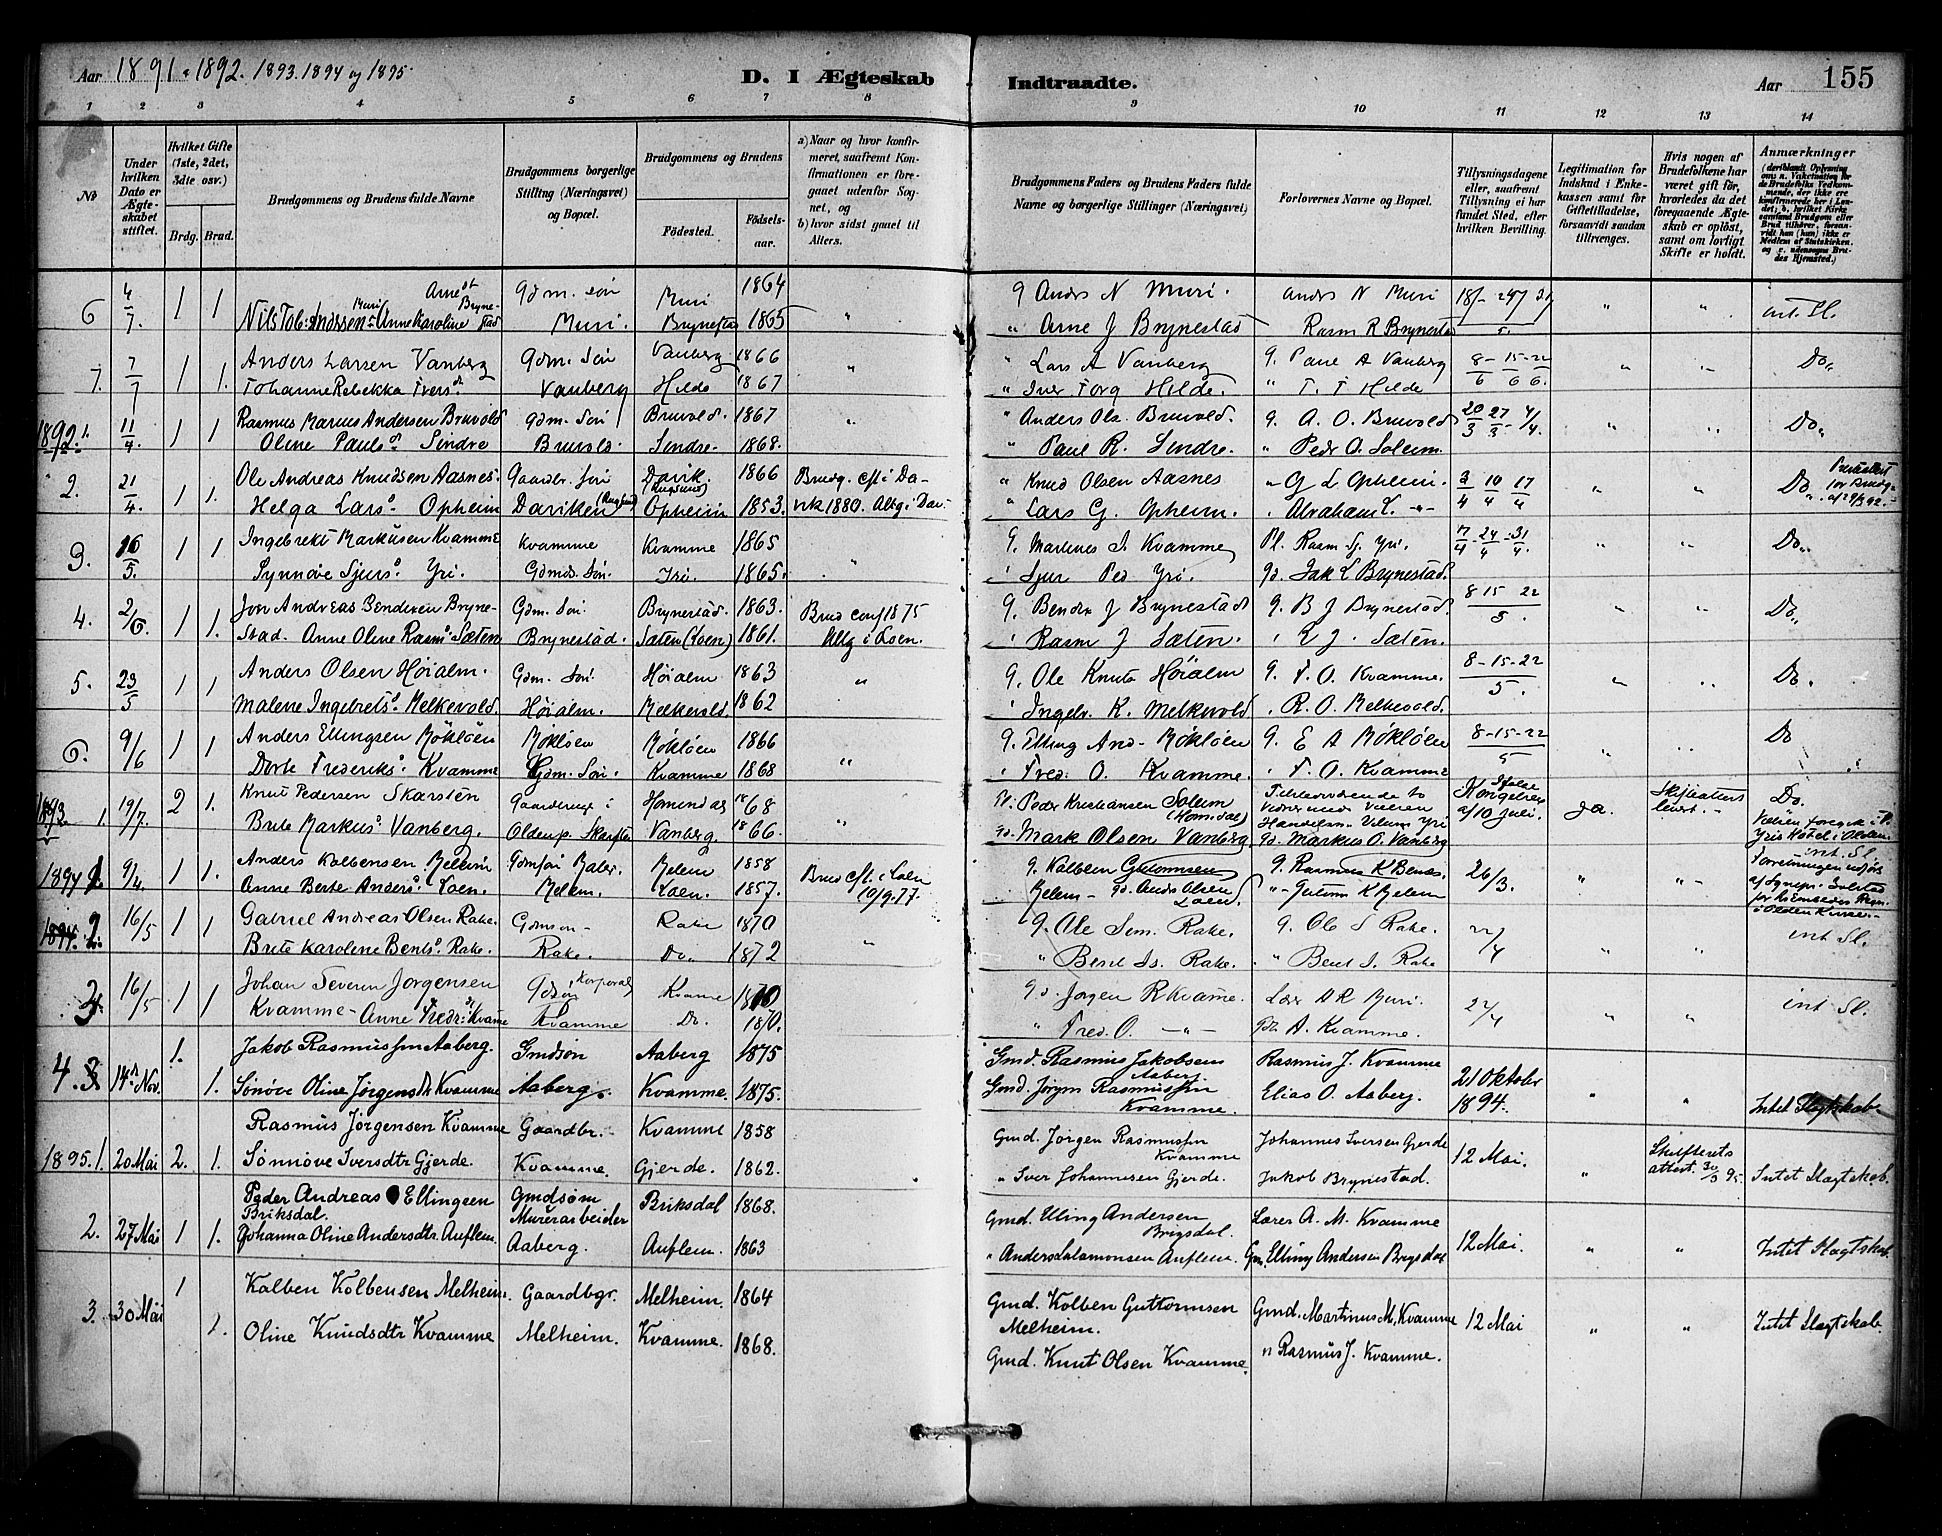 Aar 1891 & 1892. 1893. 1894 og 1895.
D. I Ægteskab Indtraadte.
Aar 155
1 2 3 4 5 6 7 8 9 10 11 12 13 14
No
Under hvilken Dato er Ægteskabet stiftet.
Hvilket Gifte (1ste, 2det, 3die osv.)
Brdg. Brud.
Brudgommens og Brudens fulde Navne
Brudgommens borgerlige Stilling (Næringsvei) og Bopæl.
Brudgommens og Brudens
Fødested.
Fødselsaar.
a) Naar og hvor konfirmeret, saafremt Konfirmationen er foregaaet udenfor Sognet, og
b) hvor sidst gaaet til Alters.
Brudgommens Faders og Brudens Faders fulde Navne og borgerlige Stillinger (Næringsvei)
Forlovernes Navne og Bopæl.
Tillysningsdagene eller, saafremt Tillysning ei har fundet Sted, efter hvilken Bevilling.
Legitimation for Indskud i Enkekassen samt for Giftetilladelse, forsaavidt saadan tiltrænges.
Hvis nogen af Brudefolkene har været gift før, hvorledes da det foregaaende Ægteskab er opløst, samt om lovligt Skifte er holdt.
Anmærkninger
6 4/7. 1 1 Nils Tob: Anderssen Muri Anne Karoline Arnesdt Brynestad Gdm. søn Muri. Muri Brynestad 1864 1865 " g Anders N Muri. " Arne J Brynestad Anders N Muri Rasm R Brynestad " "
7. 7/7 1 1. Anders Larsen Vanberg Gdm. Søn Vanberg 1866 " Lars A Vanberg g. Paul A Vanberg 8-15-22 Do "
Johanne Rebekka Ivers dt Vanberg Hilde 1867 " Iver Torg Hilde. " T. T Hilde 6 6 6.
1892 1. 11/4. 1 1 Rasmus Marius Andersen Bruvold Gdm. Søn Bruvold. 1867 " Anders Ols. Bruvold. g. A. O. Bruvold 20/3 27/3 - 4/4. " " Do "
Oline Pauls dt Sindre Bruvold. Sindre. 1868. " Paul R. Sindre. " Peder O. Solem.
2. 21/4. 1 1. Ole Andreas Knudsen Aasnes. Gaardbr. Søn Davik. (Rugsund) 1866 Brudg. cft i Da- " Knud Olsen Aasnes " G L Opheim. 3/4 10/4 17/4 " " Do
Helga Lars dt Opheim Daviken (Rugsund) Opheim 1853. vik 1880. Altg i Dav. " Lars G. Opheim. " Abraham L. -"-
3. 16/5. 1 1 Ingebrekt Markusen Kvamme Kvamme Kvamme 1865 " g. Martines I. Kvamme Pl. Rasm Sj. Yri. " " Do "
Synnøve Sjurs dt Yri. Gdmds. Søn. Yri. 1865. " Sjur Ped Yri. gd. Jak L Brynestad.
4. 2/6. 1 1. Jon Andreas Bendixen Bryne- Gdm. Søn. Brynestad. 1863. Brud conf 1875 g. Bendix J Brynestad g. B J Brynestad. 8 15 22 " " Do "
stad. Anne Oline Rasm dt Sæten Brynestad. Sæten (Loen) 1861. Altg i Loen. " Rasm J Sæten. " R J. Sæten. 5.
5. 23/5 1 1 Anders Olsen Høialm. Gdm. Søn Høialm 1863 " g. Ole Knuts Høialm g. F. O. Kvamme. 8-15-22 " " Do.
Malene Ingebrets dt Melkevold. Høialm. Melkevold. 1862 " Ingebr. K. Melkevold " R. O. Melkevold. 5.
6. 9/6 1 1 Anders Ellingsen Møkløen Møkløen Møkløen 1866 " g. Elling And. Møkløen g. E A Møkløen 8-15-22 " " Do
Dorte Frederiks dt Kvamme Gdm. Søn. Kvamme 1868 " Fred. O. Kvamme. " F. O. Kvamme 5
1893 1. 19/7. 2 1. Knut Pedersen Skarstén Gaardbruger i Hornindal 1868 " Pl. Peder Kristiansen Solem (Horndal) Kongebrev af 10 juli. ja. Skifteattest levert. Do.
Brite Markus dt Vanberg. Oldenp. Skarsten Vanberg. 1866. gd. Mark Olsen Vanberg. gd. Markus O. Vanberg
1894 1. 9/4. 1 1. Anders Kolbensen Melem Gdmsøn Melem 1858 Brud cft. i Loen g. Kolben Guttormsen g. Rasmus K Benes. 26/3. " " int. Sl.
Anne Berte Anders dt Loen. Melem. Loen. 1857. 10/9.77. Melem - gd. Anders Olsen Loen. " Guttorm K Melem
2. 16/5 1 1 Gabriel Andreas Olsen Rake. Gdmsøn Rake 1870 " g. Ole Sem. Rake. g. Ole S Rake. 22/4 " " int Sl.
Brite Karoline Bents dt Rake. Rake. Do. 1872 " Bent Is. Rake. " Bent I. Rake
3 16/5 1 1 Johan Severin Jørgensen Gdsøn, Korporal Kvamme 1870 gd. Jørgen R Kvamme. Lærer A R Muri. 22/4 " " int Sl.
Kvamme - Anne Fredr: dt Kvamme Kvamme Do. 1870. " Fred. O. -"- gdb. A. Kvamme.
4. 14de Nov. 1. Jakob Rasmussen Aaberg. Gmdsøn Aaberg 1875 Gmd. Rasmus Jakobsen Aaberg Rasmus J. Kvamme 21 Oktober 1894. " " Intet Slægtskab.
1. Sønove Oline Jørgensdtr Kvamme Aaberg. Kvamme. 1875. Gmd. Jørgen Rasmussen Kvamme. Elias O. Aaberg.
1895. 1. 20 Mai 2. 1. Rasmus Jörgensen Kvamme Gaardbr. Kvamme 1858 Gmd. Jørgen Rasmussen Kvamme Johannes Iversen Gjerde 12 Mai. " Skifterets attest. 30/3 95 Intet Slægtskab.
Sönnöve Iversdtr Gjerde. Kvamme. Gjerde. 1862. " Iver Johannesen Gjerde. Jakob Brynestad.
2. 27 Mai 1 1. Peder Andreas Ellingsen Briksdal. Gmdsøn Murerarbeider Briksdal 1868. Gmd. Elling Andersen Brigsdal. Lærer A. M. Kvamme 12 Mai. " " Intet Slægtskab.
Johanna Oline Andersdtr. Auflem. Aaberg. Auflem. 1863 " Anders Salamonsen Auflem. Gm. Elling Andersen Brigsdal
3. 30 Mai 1 Kolben Kolbensen Melheim. Gaardbgr. Melheim. 1864 Gmd. Kolben Guttormsen Melheim. Gmd. Martinus M. Kvamme 12 Mai " " Intet Slægtskab.
1. Oline Knudsdtr Kvamme Melheim. Kvamme. 1868. Gmd. Knut Olsen Kvamme. " Rasmus J. Kvamme.